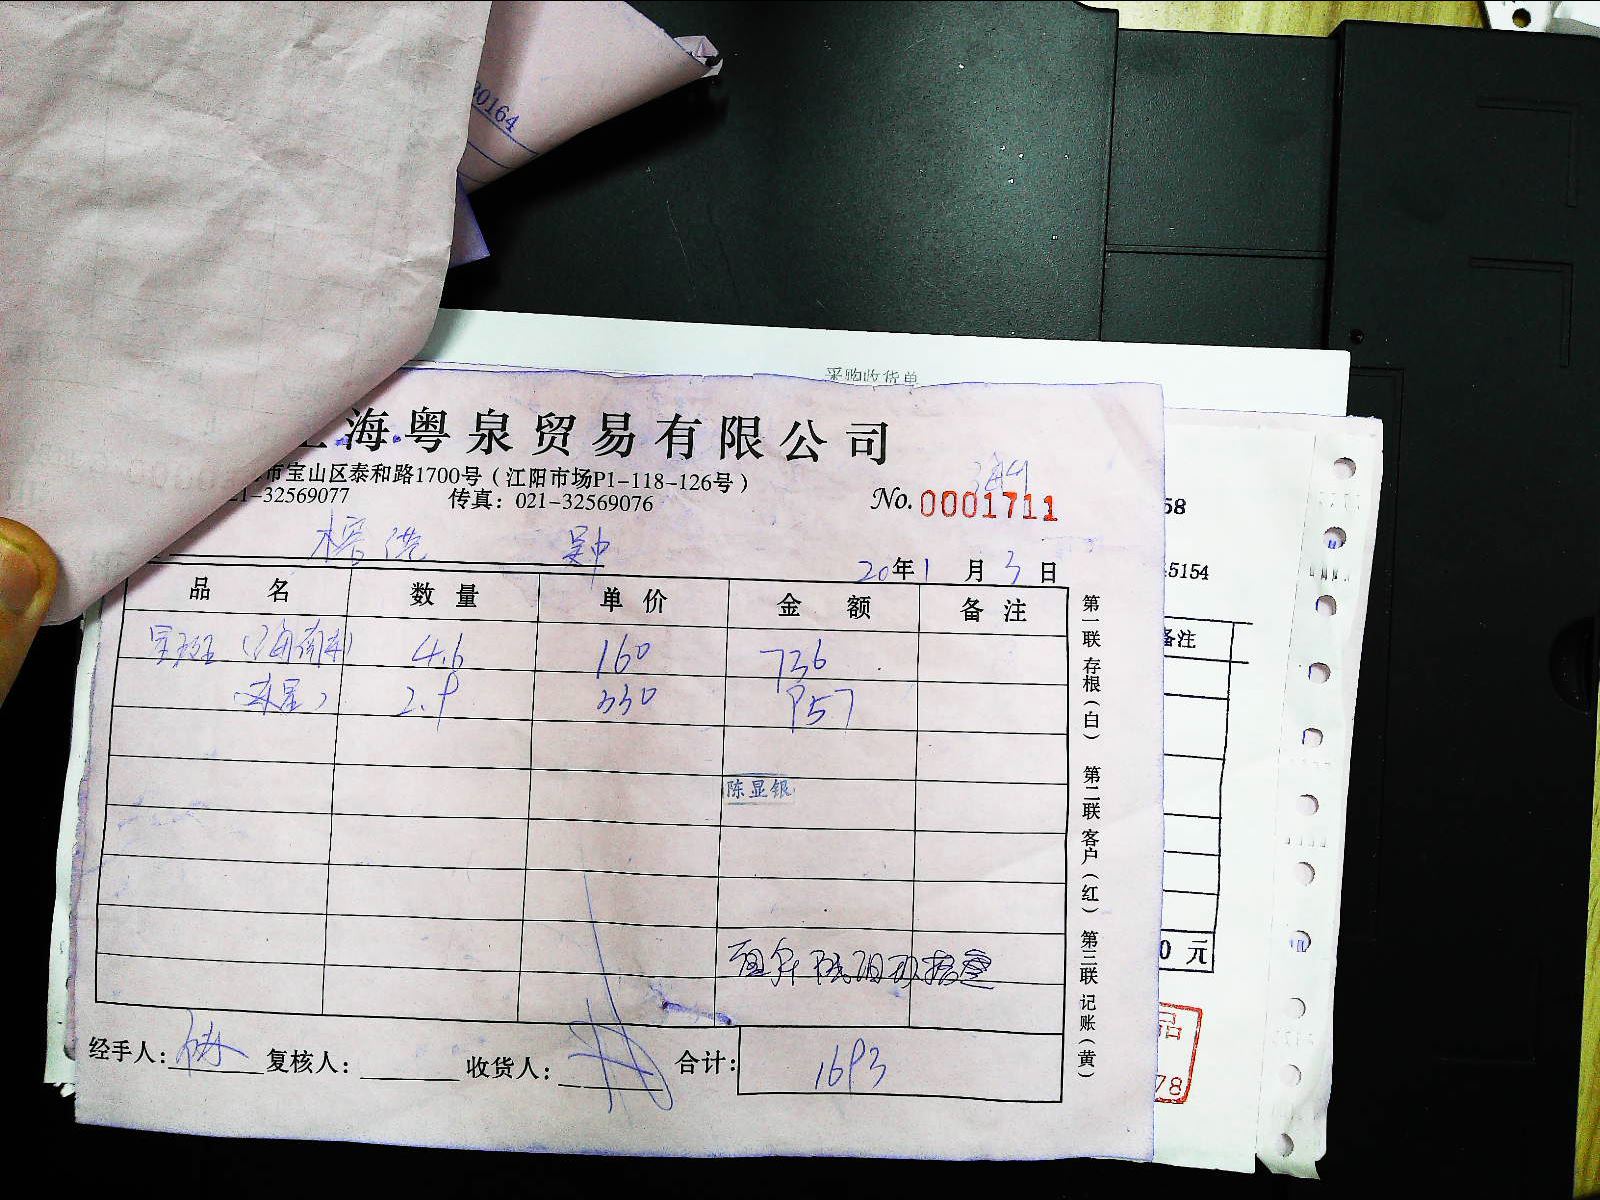 30164
采购收货单
上海粤泉贸易有限公司
市宝山区泰和路1700号（江阳市场P1-118-126号）
21-32569077 传真：021-32569076
No. 0001711
58
20年1月3日
5154
品名 数量 单价 金额 备注
备注
(海南) 4.6 160 736
(东星) 2.9 330 957
陈显银
0 元
经手人： 复核人： 收货人： 合计： 1693
品
78
第一联 存根（白） 第二联 客户（红） 第三联 记账（黄）